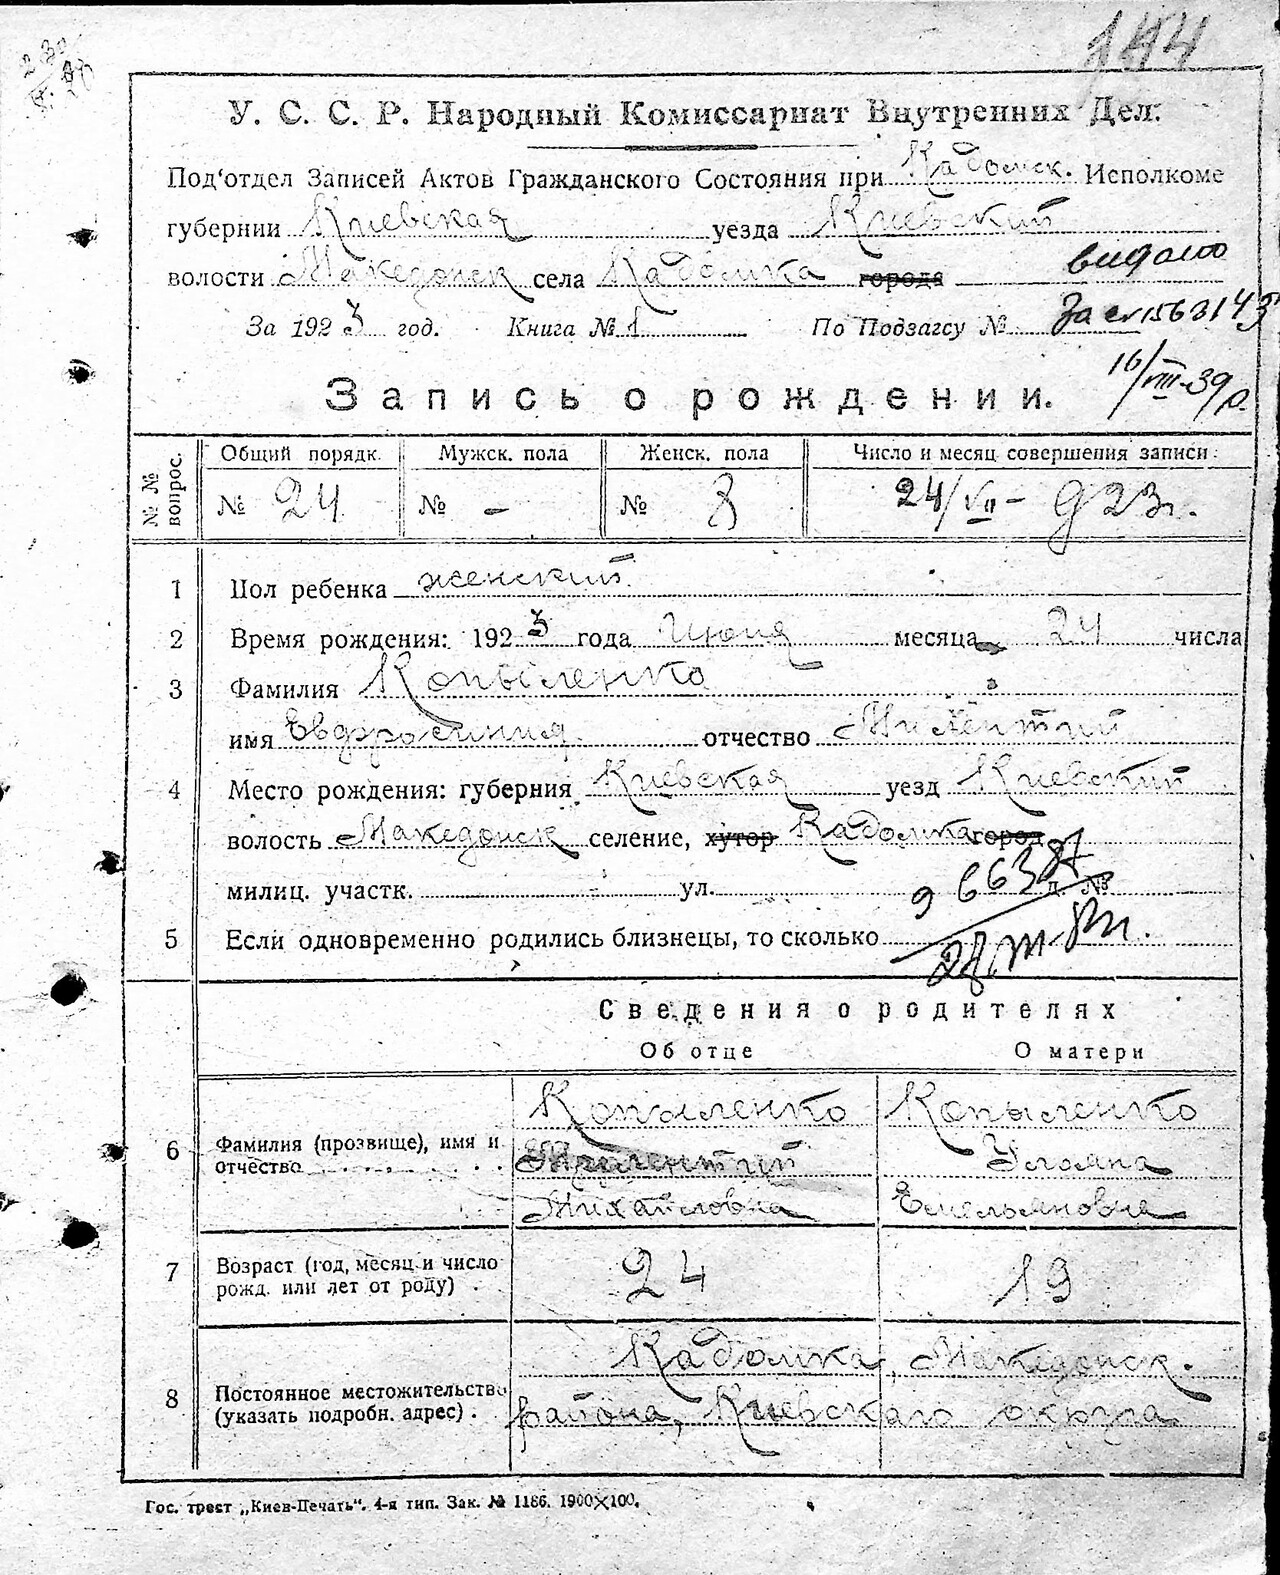 144
У. С. С. Р. Народный Комиссариат Внутренних Дел.
Под'отдел Записей Актов Гражданского Состояния при Кадомск. Исполкоме
губернии Киевская уезда Киевский
волости Македонск села Кадомка города
видано
За 1923 год. Книга № 1 По Подзагсу №
За
16/VIII-39р.
Запись о рождении.
№ № вопрос.
Общий порядк. Мужск. пола Женск. пола Число и месяц совершения записи:
№ 24 № - № 8 24/VII - 923г.
1 Пол ребенка женский
2 Время рождения: 1923 года Июня месяца 24 числа
3 Фамилия Копыленко
имя Евфросиния отчество
4 Место рождения: губерния Киевская уезд Киевский
волость Македонск селение, хутор Кадомка город
милиц. участк. - ул. д. №
5 Если одновременно родились близнецы, то сколько
Сведения о родителях
Об отце О матери
6 Фамилия (прозвище), имя и отчество
Копыленко Копыленко
Улояна
Михайловна Емельяновна
7 Возраст (год, месяц и число рожд. или лет от роду) . 24 19
8 Постоянное местожительство (указать подробн. адрес) .
Кадомка, Македонск.
района, Киевскаго округа
Гос. трест „Киев-Печать". 4-я тип. Зак. № 1186. 1900×100.